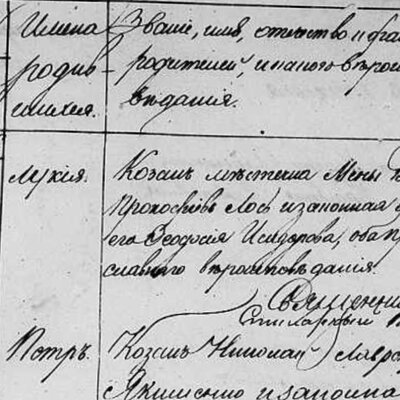 Имена Званіе, имя, отчество и фа
родив- родителей, и какого вѣрои
шихся. вѣданія.
Лукія. Козакъ мѣстечка Мены
Прокофіевъ Лось и законная
его Ѳеодосія Исидорова, оба пра
славнаго вѣроисповѣданія.
Священни
Петръ. Козакъ Николай Лавро
Якименко и законна